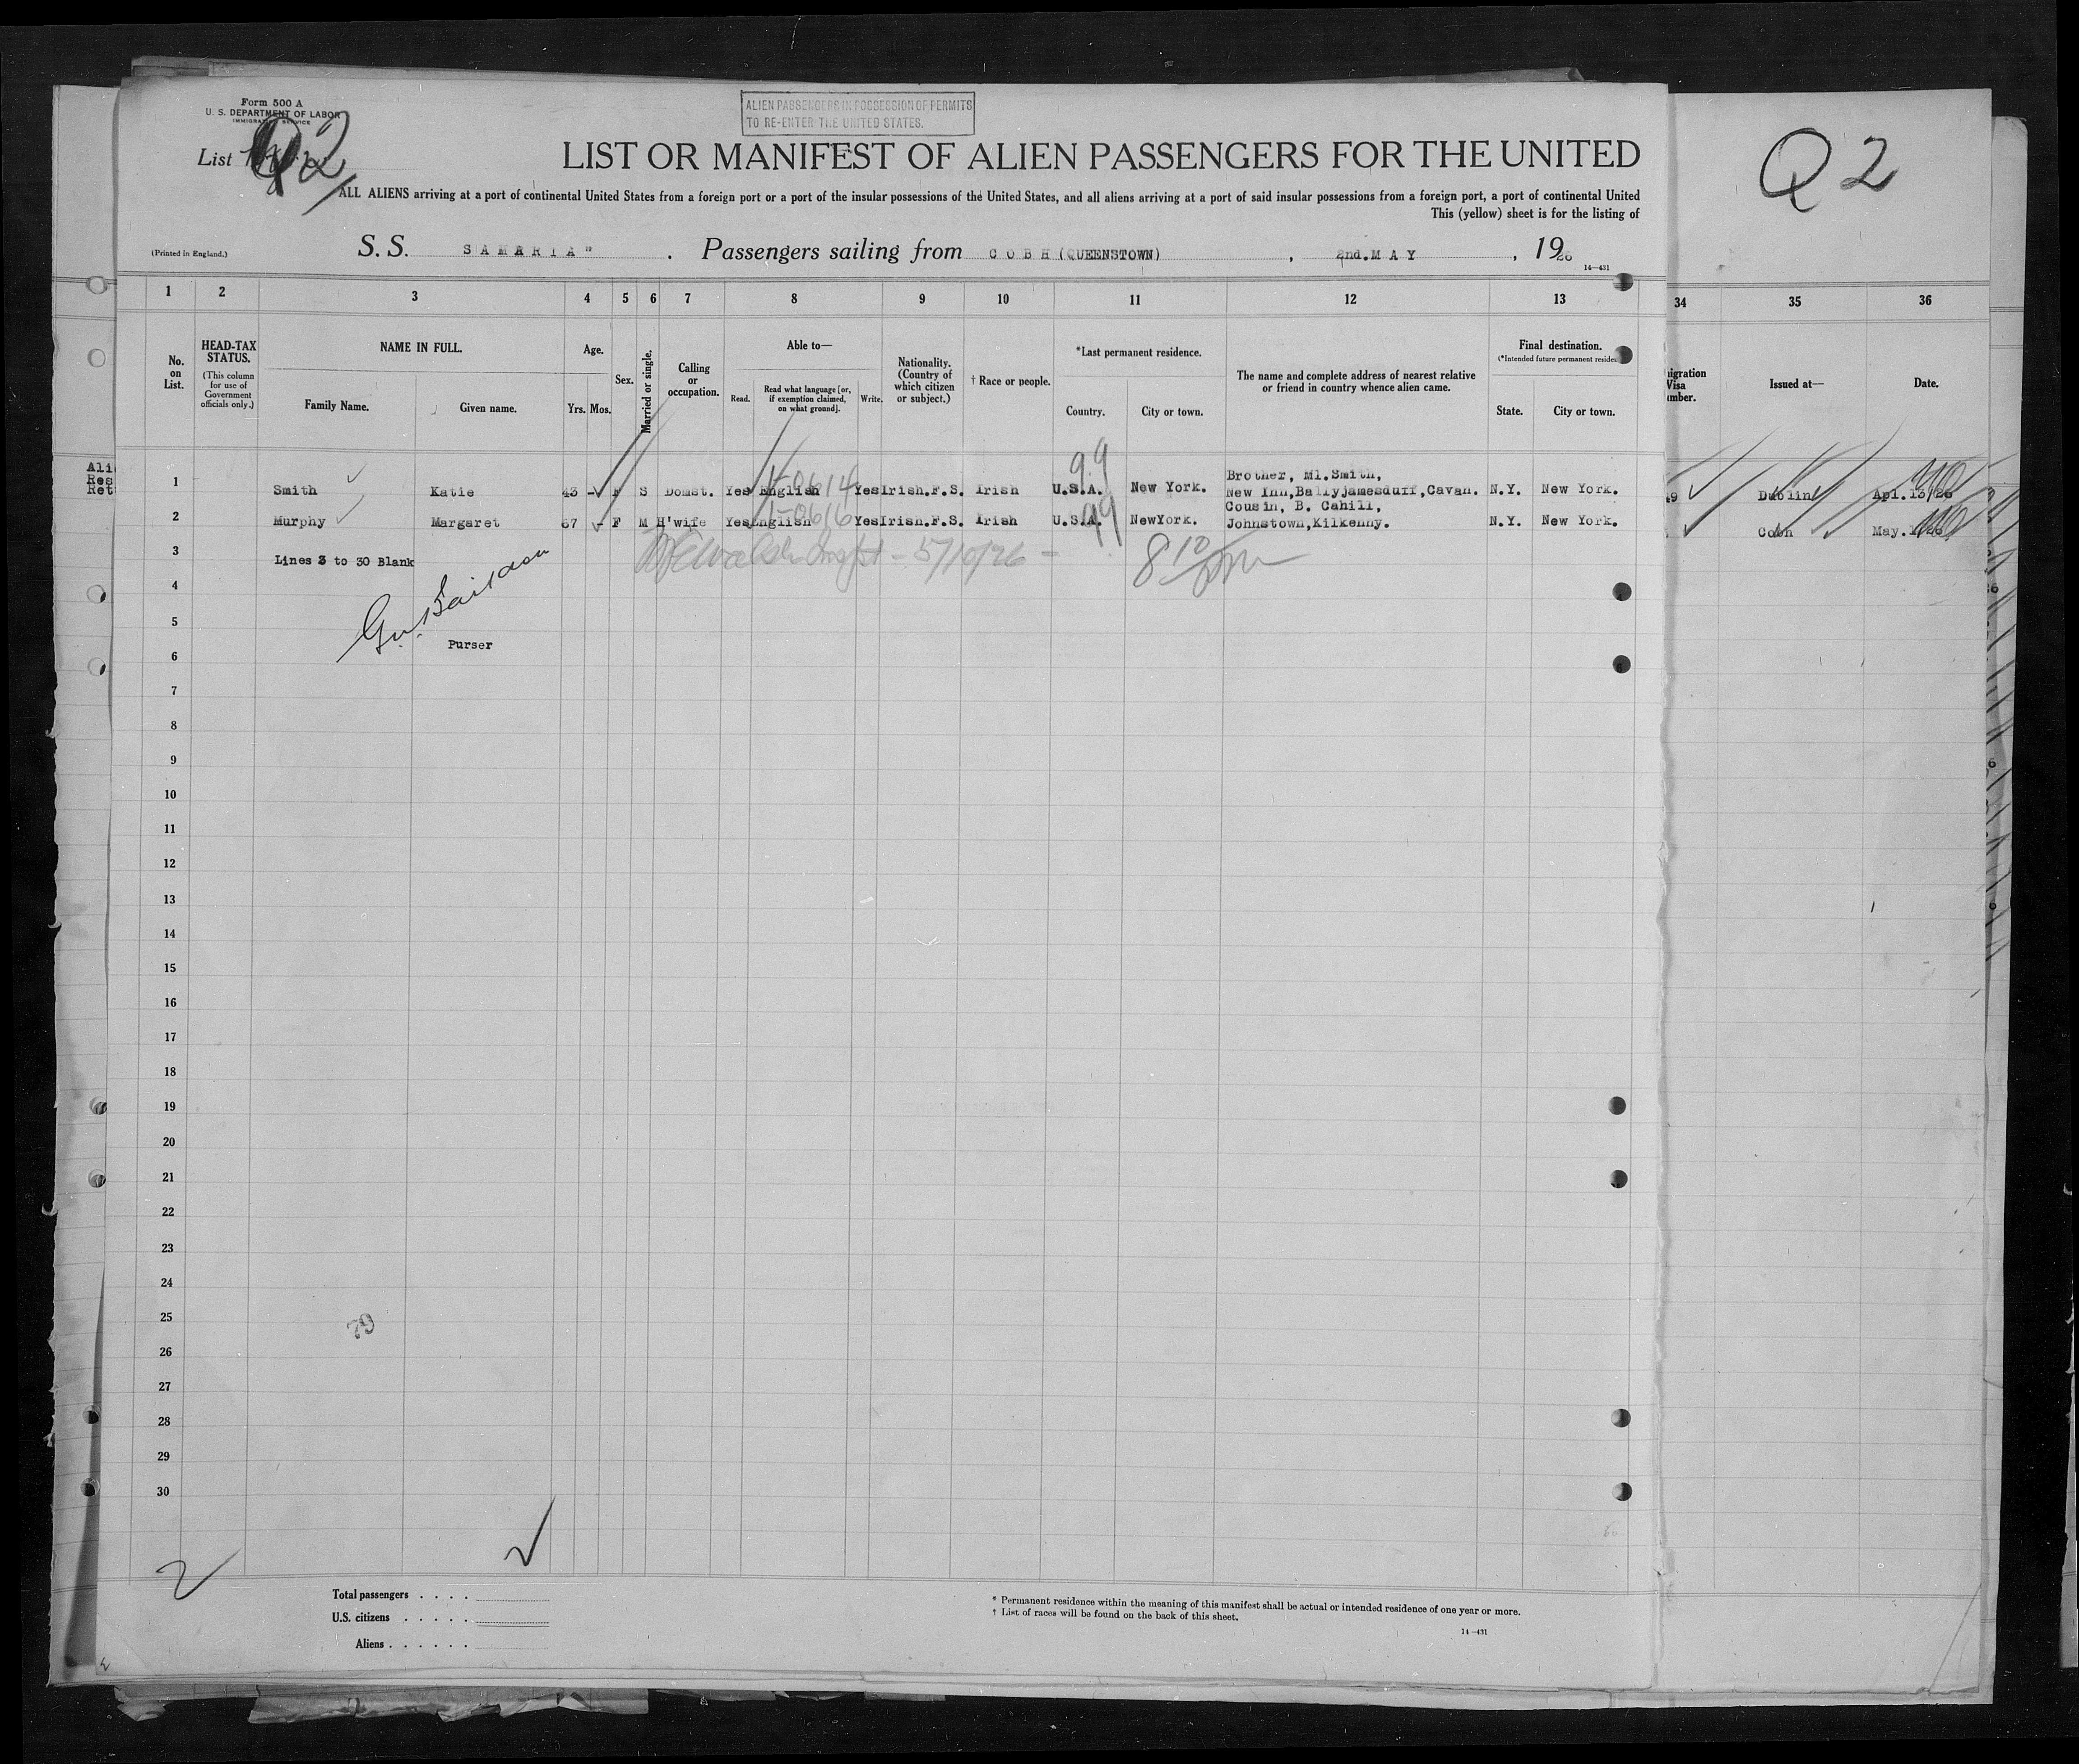 Form 500 A
U. S. DEPARTMENT OF LABOR
IMMIGRATION SERVICE
ALIEN PASSENGERS IN POSSESSION OF PERMITS
TO RE-ENTER THE UNITED STATES.
List Q2
LIST OR MANIFEST OF ALIEN PASSENGERS FOR THE UNITED
Q2
ALL ALIENS arriving at a port of continental United States from a foreign port or a port of the insular possessions of the United States, and all aliens arriving at a port of said insular possessions from a foreign port, a port of continental United
This (yellow) sheet is for the listing of
(Printed in England.) S. S. SAMARIA" . Passengers sailing from COBH (QUEENSTOWN) , 2nd. MAY , 1926
14—431
1 2 3 4 5 6 7 8 9 10 11 12 13 34 35 36
No. on List.
HEAD-TAX STATUS. (This column for use of Government officials only.)
NAME IN FULL.
Family Name. Given name.
Age.
Yrs. Mos.
Sex.
Married or single.
Calling or occupation.
Able to—
Read. Read what language [or, if exemption claimed, on what ground]. Write.
Nationality. (Country of which citizen or subject.)
† Race or people.
*Last permanent residence.
Country. City or town.
The name and complete address of nearest relative or friend in country whence alien came.
Final destination.
(*Intended future permanent reside
State. City or town.
igration
Visa
mber.
Issued at—
Date.
Ali
Res
Ret
99
Brother, Ml.Smith,
1 Smith Katie 43 - F S Domst. Yes English Yes Irish.F.S. Irish U.S.A. New York. New Inn,Ballyjamesduff,Cavan. N.Y. New York. 49 Dublin Apl.15/26
Cousin, B. Cahill,
2 Murphy Margaret 67 - F M H'wife Yes English Yes Irish.F.S. Irish U.S.A. NewYork. Johnstown,Kilkenny. N.Y. New York. Cobh May.1/26
99
3 Lines 3 to 30 Blank
5/10/26 8 10 pm
4
5
Purser
6
7
8
9
10
11
12
13
14
15
16
17
18
19
20
21
22
23
24
25
79
26
27
28
29
30
2
Total passengers . . . .
U.S. citizens . . . . .
Aliens . . . . . .
* Permanent residence within the meaning of this manifest shall be actual or intended residence of one year or more.
† List of races will be found on the back of this sheet.
14—431